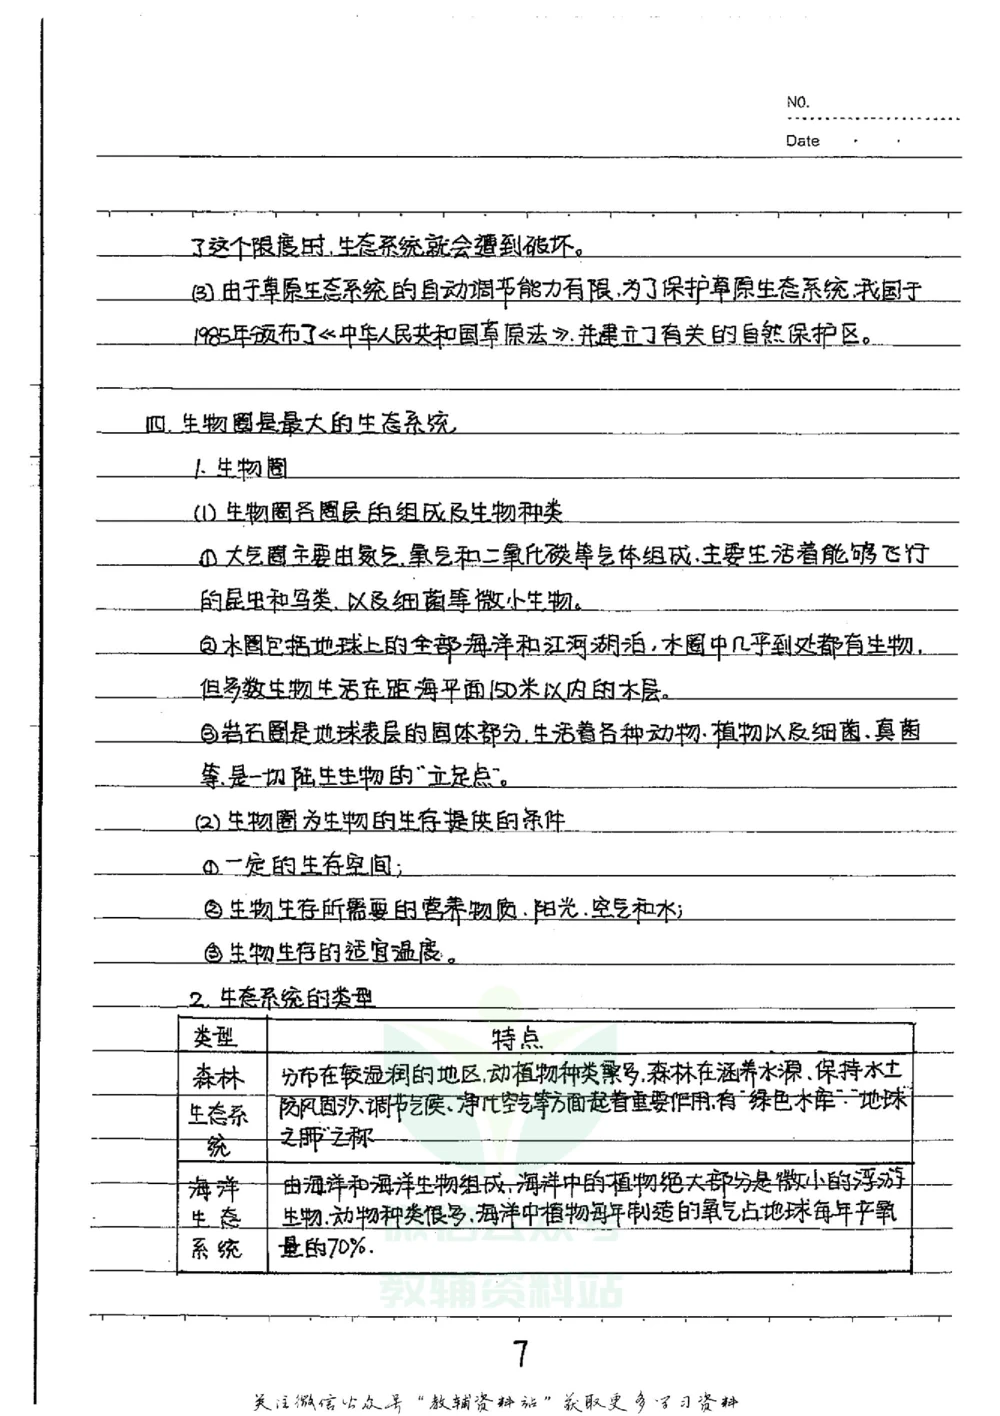 NO.
Date
了这个限度时,生态系统就会遭到破坏。
(3)由于草原生态系统的自动调节能力有限,为了保护草原生态系统,我国于
1985年颁布了《中华人民共和国草原法》,并建立了有关的自然保护区。
四、生物圈是最大的生态系统
1. 生物圈
(1)生物圈各圈层的组成及生物种类
①大气圈主要由氮气、氧气和二氧化碳等气体组成,主要生活着能够飞行
的昆虫和鸟类,以及细菌等微小生物。
②水圈包括地球上的全部海洋和江河湖泊,水圈中几乎到处都有生物,
但多数生物生活在距海平面150米以内的水层。
③岩石圈是地球表层的固体部分,生活着各种动物、植物以及细菌、真菌
等,是一切陆生生物的“立足点”。
(2)生物圈为生物的生存提供的条件
①一定的生存空间;
②生物生存所需要的营养物质、阳光、空气和水;
③生物生存的适宜温度。
2. 生态系统的类型
类型 特点
森林 分布在较湿润的地区,动植物种类繁多,森林在涵养水源、保持水土
生态系 防风固沙、调节气候、净化空气等方面起着重要作用,有“绿色水库”“地球
统 之肺”之称
海洋 由海洋和海洋生物组成,海洋中的植物绝大部分是微小的浮游
生态 生物,动物种类很多,海洋中植物每年制造的氧气占地球每年产氧
系统 量的70%.
微信公众号
教辅资料站
7
关注微信公众号“教辅资料站”获取更多学习资料